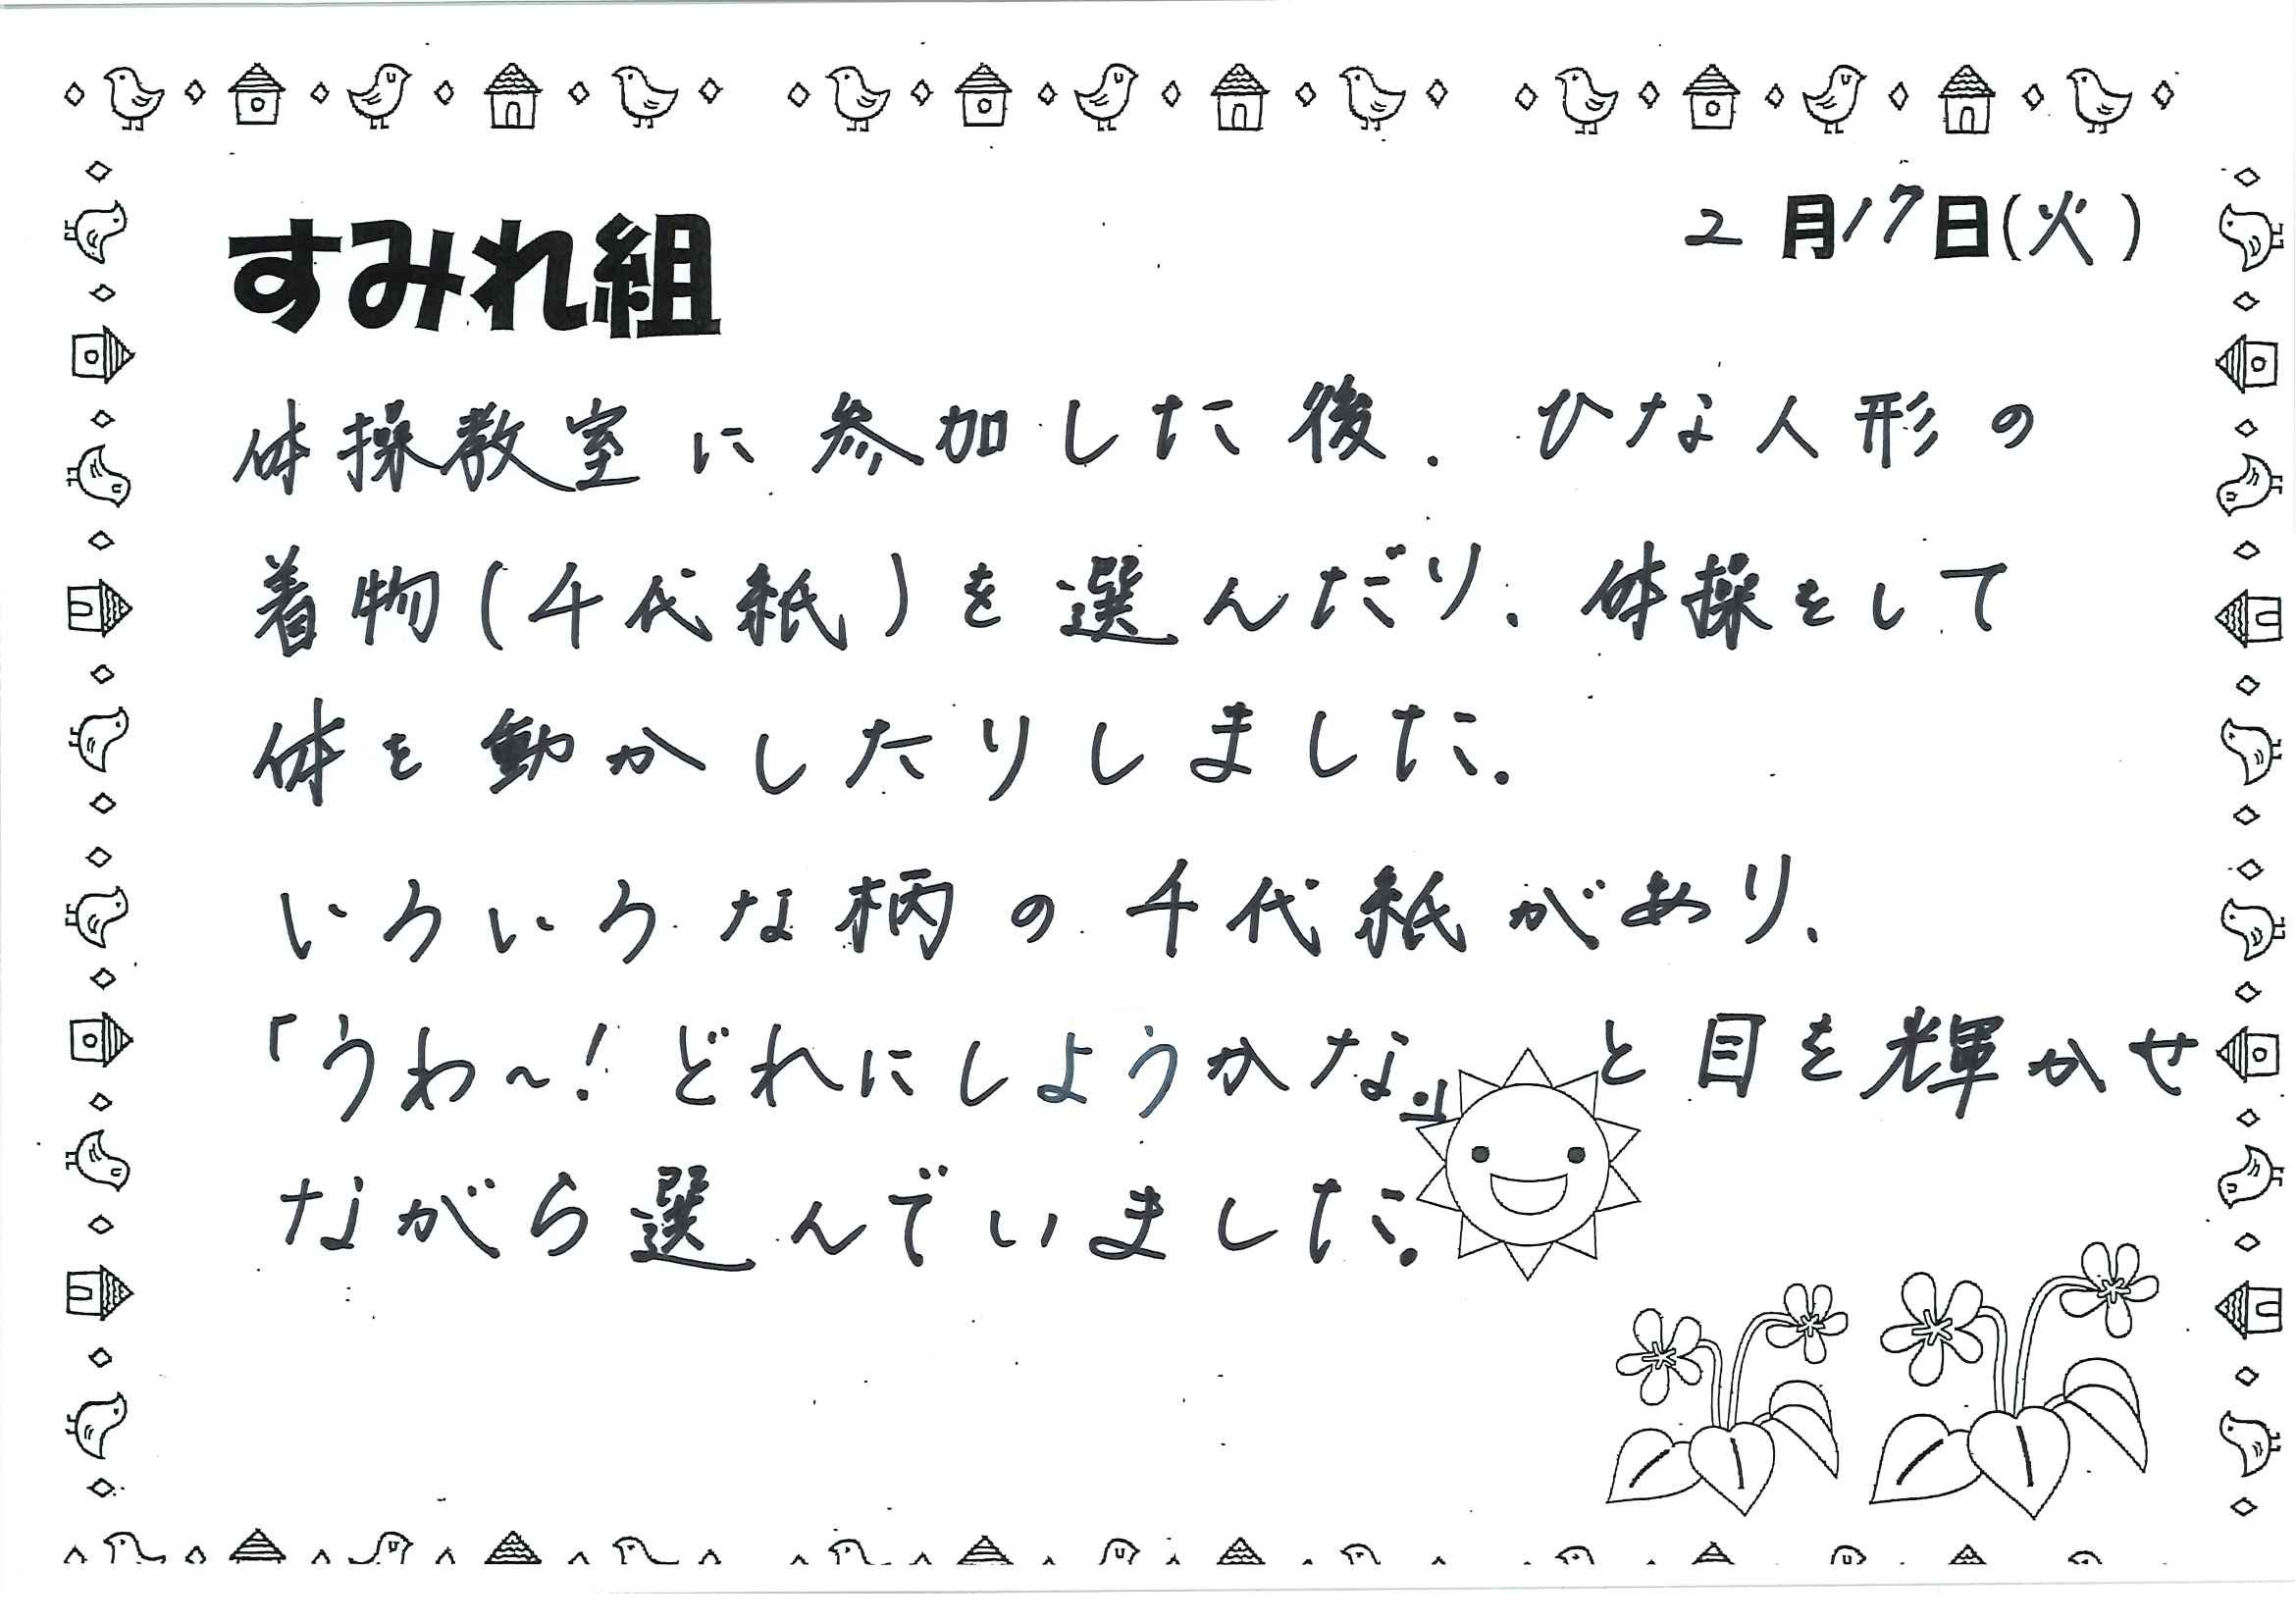 2月17日(火)
すみれ組
体操教室に参加した後、ひな人形の
着物(千代紙)を選んだり、体操をして
体を動かしたりしました。
いろいろな柄の千代紙があり、
「うわ~!どれにしようかな。」と目を輝かせ
ながら選んでいました。